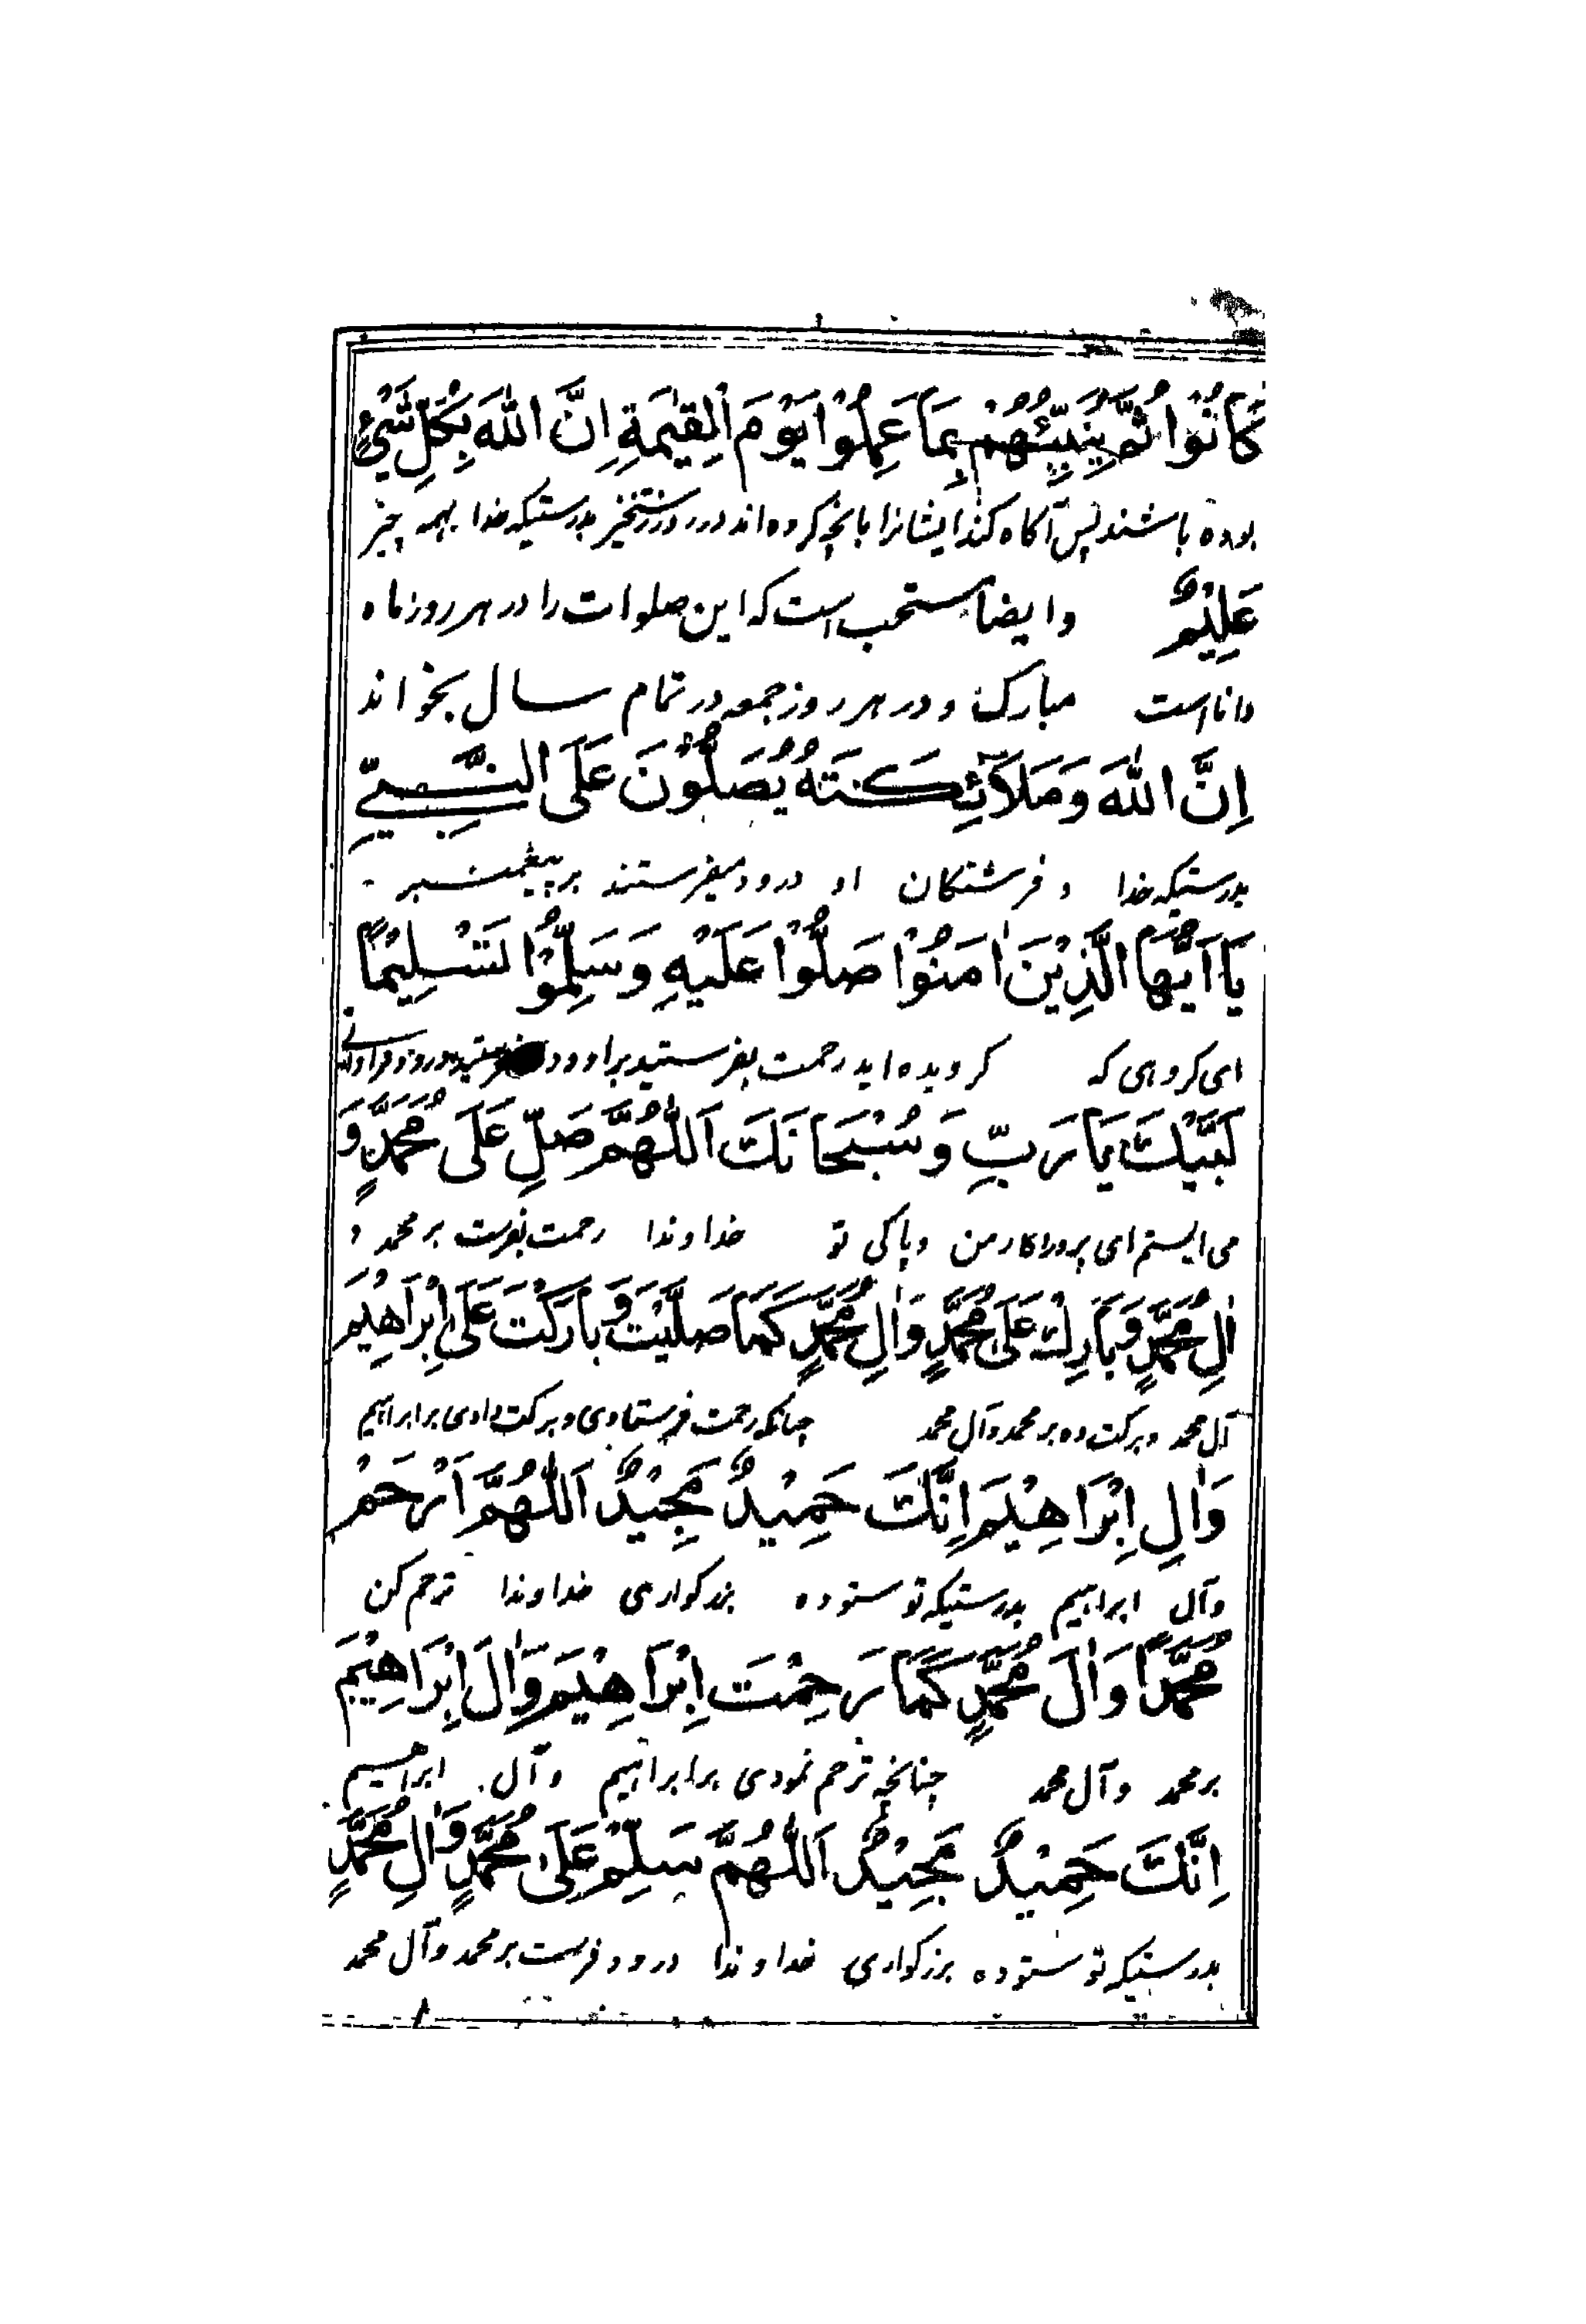 كَانُوْا ثُمَّ يُنَبِّئُهُمْ بِمَا عَمِلُوْا يَوْمَ الْقِيٰمَةِ اِنَّ اللّٰهَ بِكُلِّ شَيْءٍ
بوده باشند پس آکاه کند ایشانرا بانچه کرده‌اند در روز رستخیز بدرستیکه خدا بهمه چیز
عَلِيْمٌ وایضا مستحب است که این صلوات را در هر روز ماه
دانا است مبارک و در هر روز جمعه در تمام سال بخواند
اِنَّ اللّٰهَ وَمَلَآئِكَتَهُ يُصَلُّوْنَ عَلَى النَّبِيِّ
بدرستیکه خدا و فرشتکان او درود میفرستند بر پیغمبر
يَا اَيُّهَا الَّذِيْنَ اٰمَنُوْا صَلُّوْا عَلَيْهِ وَسَلِّمُوْا تَسْلِيْمًا
ای کروهی که کرویده‌اید رحمت بفرستید بر او و درود
لَبَّيْكَ يَا رَبِّ وَسُبْحَانَكَ اَللّٰهُمَّ صَلِّ عَلَى مُحَمَّدٍ وَ
می ایستم ای پروردکار من و پاکی تو خداوندا رحمت بفرست بر محمد و
اٰلِ مُحَمَّدٍ وَبَارِكْ عَلَى مُحَمَّدٍ وَاٰلِ مُحَمَّدٍ كَمَا صَلَّيْتَ وَبَارَكْتَ عَلَى اِبْرَاهِيْمَ
آل محمد و برکت ده بر محمد و آل محمد چنانکه رحمت فرستادی و برکت دادی بر ابراهیم
وَاٰلِ اِبْرَاهِيْمَ اِنَّكَ حَمِيْدٌ مَجِيْدٌ اَللّٰهُمَّ اَرْحَمْ
و آل ابراهیم بدرستیکه تو ستوده بزرکواری خداوندا ترحم کن
مُحَمَّدًا وَاٰلَ مُحَمَّدٍ كَمَا رَحِمْتَ اِبْرَاهِيْمَ وَاٰلَ اِبْرَاهِيْمَ
بر محمد و آل محمد چنانچه ترحم نمودی بر ابراهیم و آل ابراهیم
اِنَّكَ حَمِيْدٌ مَجِيْدٌ اَللّٰهُمَّ سَلِّمْ عَلَى مُحَمَّدٍ وَاٰلِ مُحَمَّدٍ
بدرستیکه تو ستوده بزرکواری خداوندا درود فرست بر محمد و آل محمد